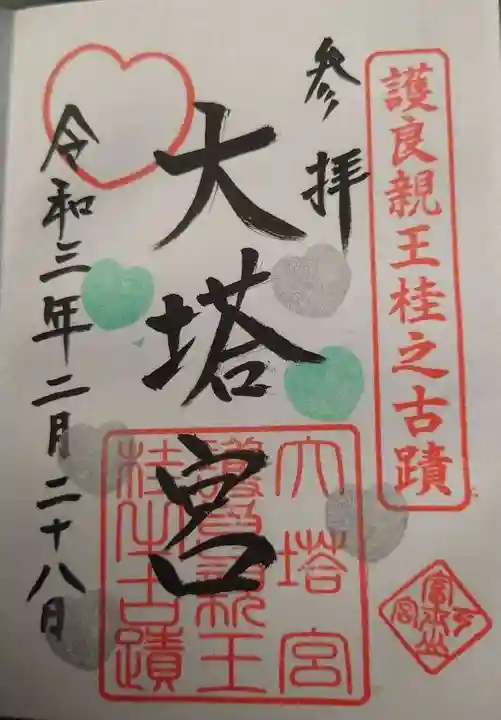 護良親王桂之古蹟
参拝
大塔宮
令和三年二月二十八日
大塔宮
護良親王
桂之古蹟